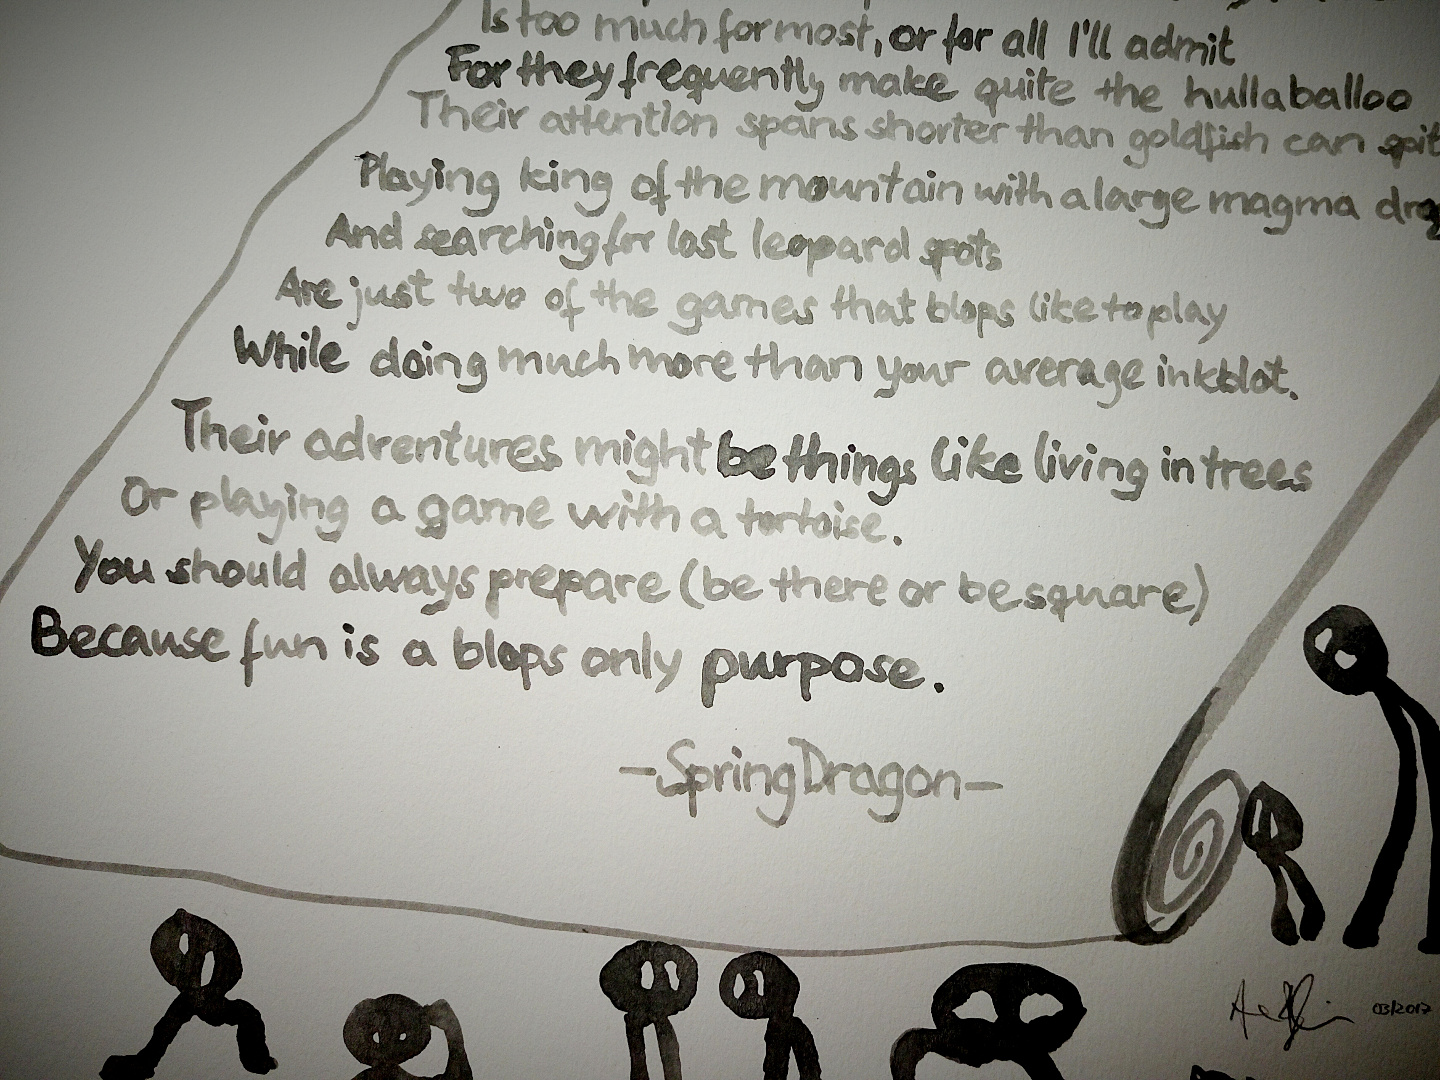 Is too much for most, or for all I'll admit
For they frequently make quite the hullaballoo
Their attention spans shorter than goldfish can spit
Playing king of the mountain with a large magma
And searching for lost leopard spots
Are just two of the games that blops like to play
While doing much more than your average inkblot.
Their adventures might be things like living in trees
Or playing a game with a tortoise.
You should always prepare (be there or be square)
Because fun is a blops only purpose.
-SpringDragon-
03/2017